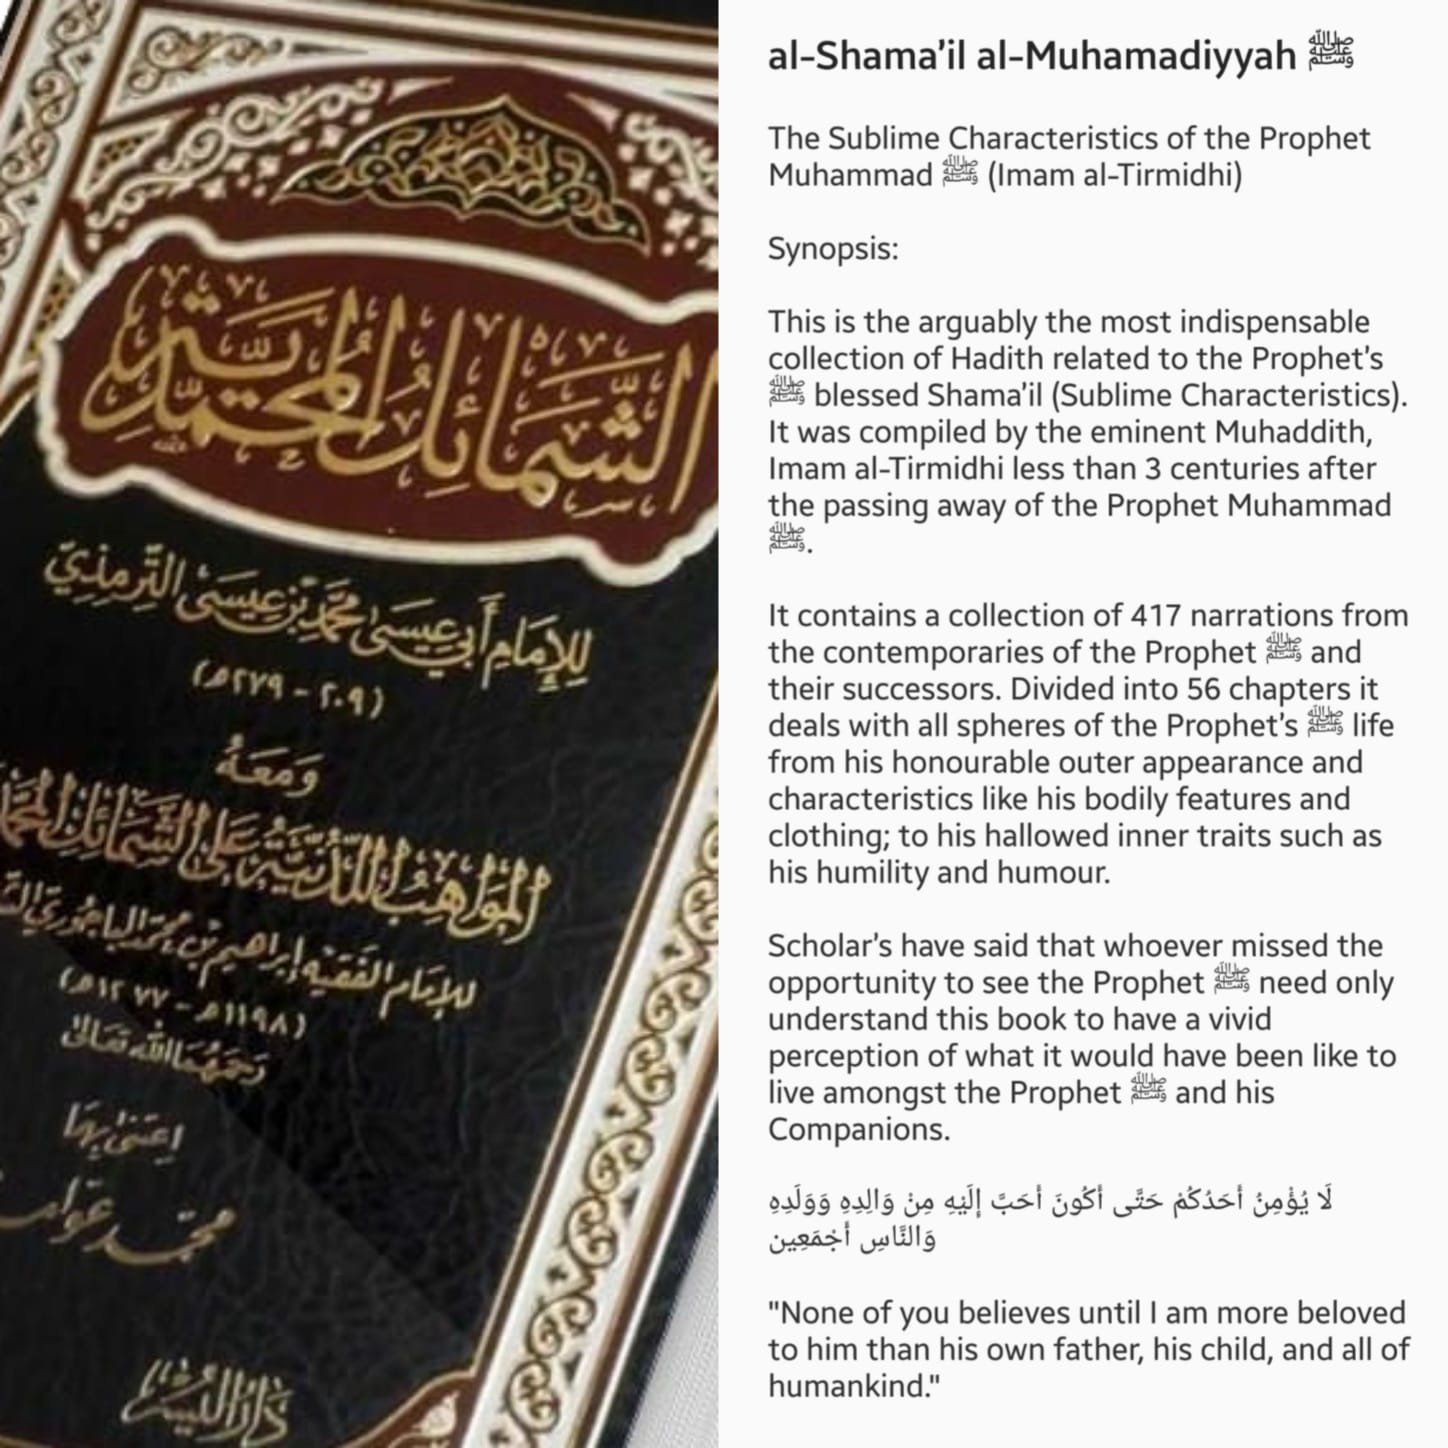 الشَّمَائِلُ المُحَمَّدِيَّة
لِلإِمَامِ أَبِي عِيسَىٰ مُحَمَّدِ بْنِ عِيسَىٰ التِّرمِذِيّ
(٢٠٩ - ٢٧٩ه)
وَمَعَهُ
المَوَاهِبُ اللَّدُنِّيَّة عَلَى الشَّمَائِلِ
لِلإِمَامِ الفَقِيهِ إِبرَاهِيم بْنِ مُحَمَّد البَاجُورِيّ
(١١٩٨ه - ١٢٧٧ه)
رَحِمَهُمَا اللهُ تَعَالَىٰ
اعتَنَىٰ بِهَا
محمّد عوّامة
دَارُ اليُسْر
al-Shama'il al-Muhamadiyyah ﷺ
The Sublime Characteristics of the Prophet
Muhammad ﷺ (Imam al-Tirmidhi)
Synopsis:
This is the arguably the most indispensable
collection of Hadith related to the Prophet's
ﷺ blessed Shama'il (Sublime Characteristics).
It was compiled by the eminent Muhaddith,
Imam al-Tirmidhi less than 3 centuries after
the passing away of the Prophet Muhammad
ﷺ.
It contains a collection of 417 narrations from
the contemporaries of the Prophet ﷺ and
their successors. Divided into 56 chapters it
deals with all spheres of the Prophet's ﷺ life
from his honourable outer appearance and
characteristics like his bodily features and
clothing; to his hallowed inner traits such as
his humility and humour.
Scholar's have said that whoever missed the
opportunity to see the Prophet ﷺ need only
understand this book to have a vivid
perception of what it would have been like to
live amongst the Prophet ﷺ and his
Companions.
لَا يُؤْمِنُ أَحَدُكُمْ حَتَّى أَكُونَ أَحَبَّ إِلَيْهِ مِنْ وَالِدِهِ وَوَلَدِهِ
وَالنَّاسِ أَجْمَعِين
"None of you believes until I am more beloved
to him than his own father, his child, and all of
humankind."